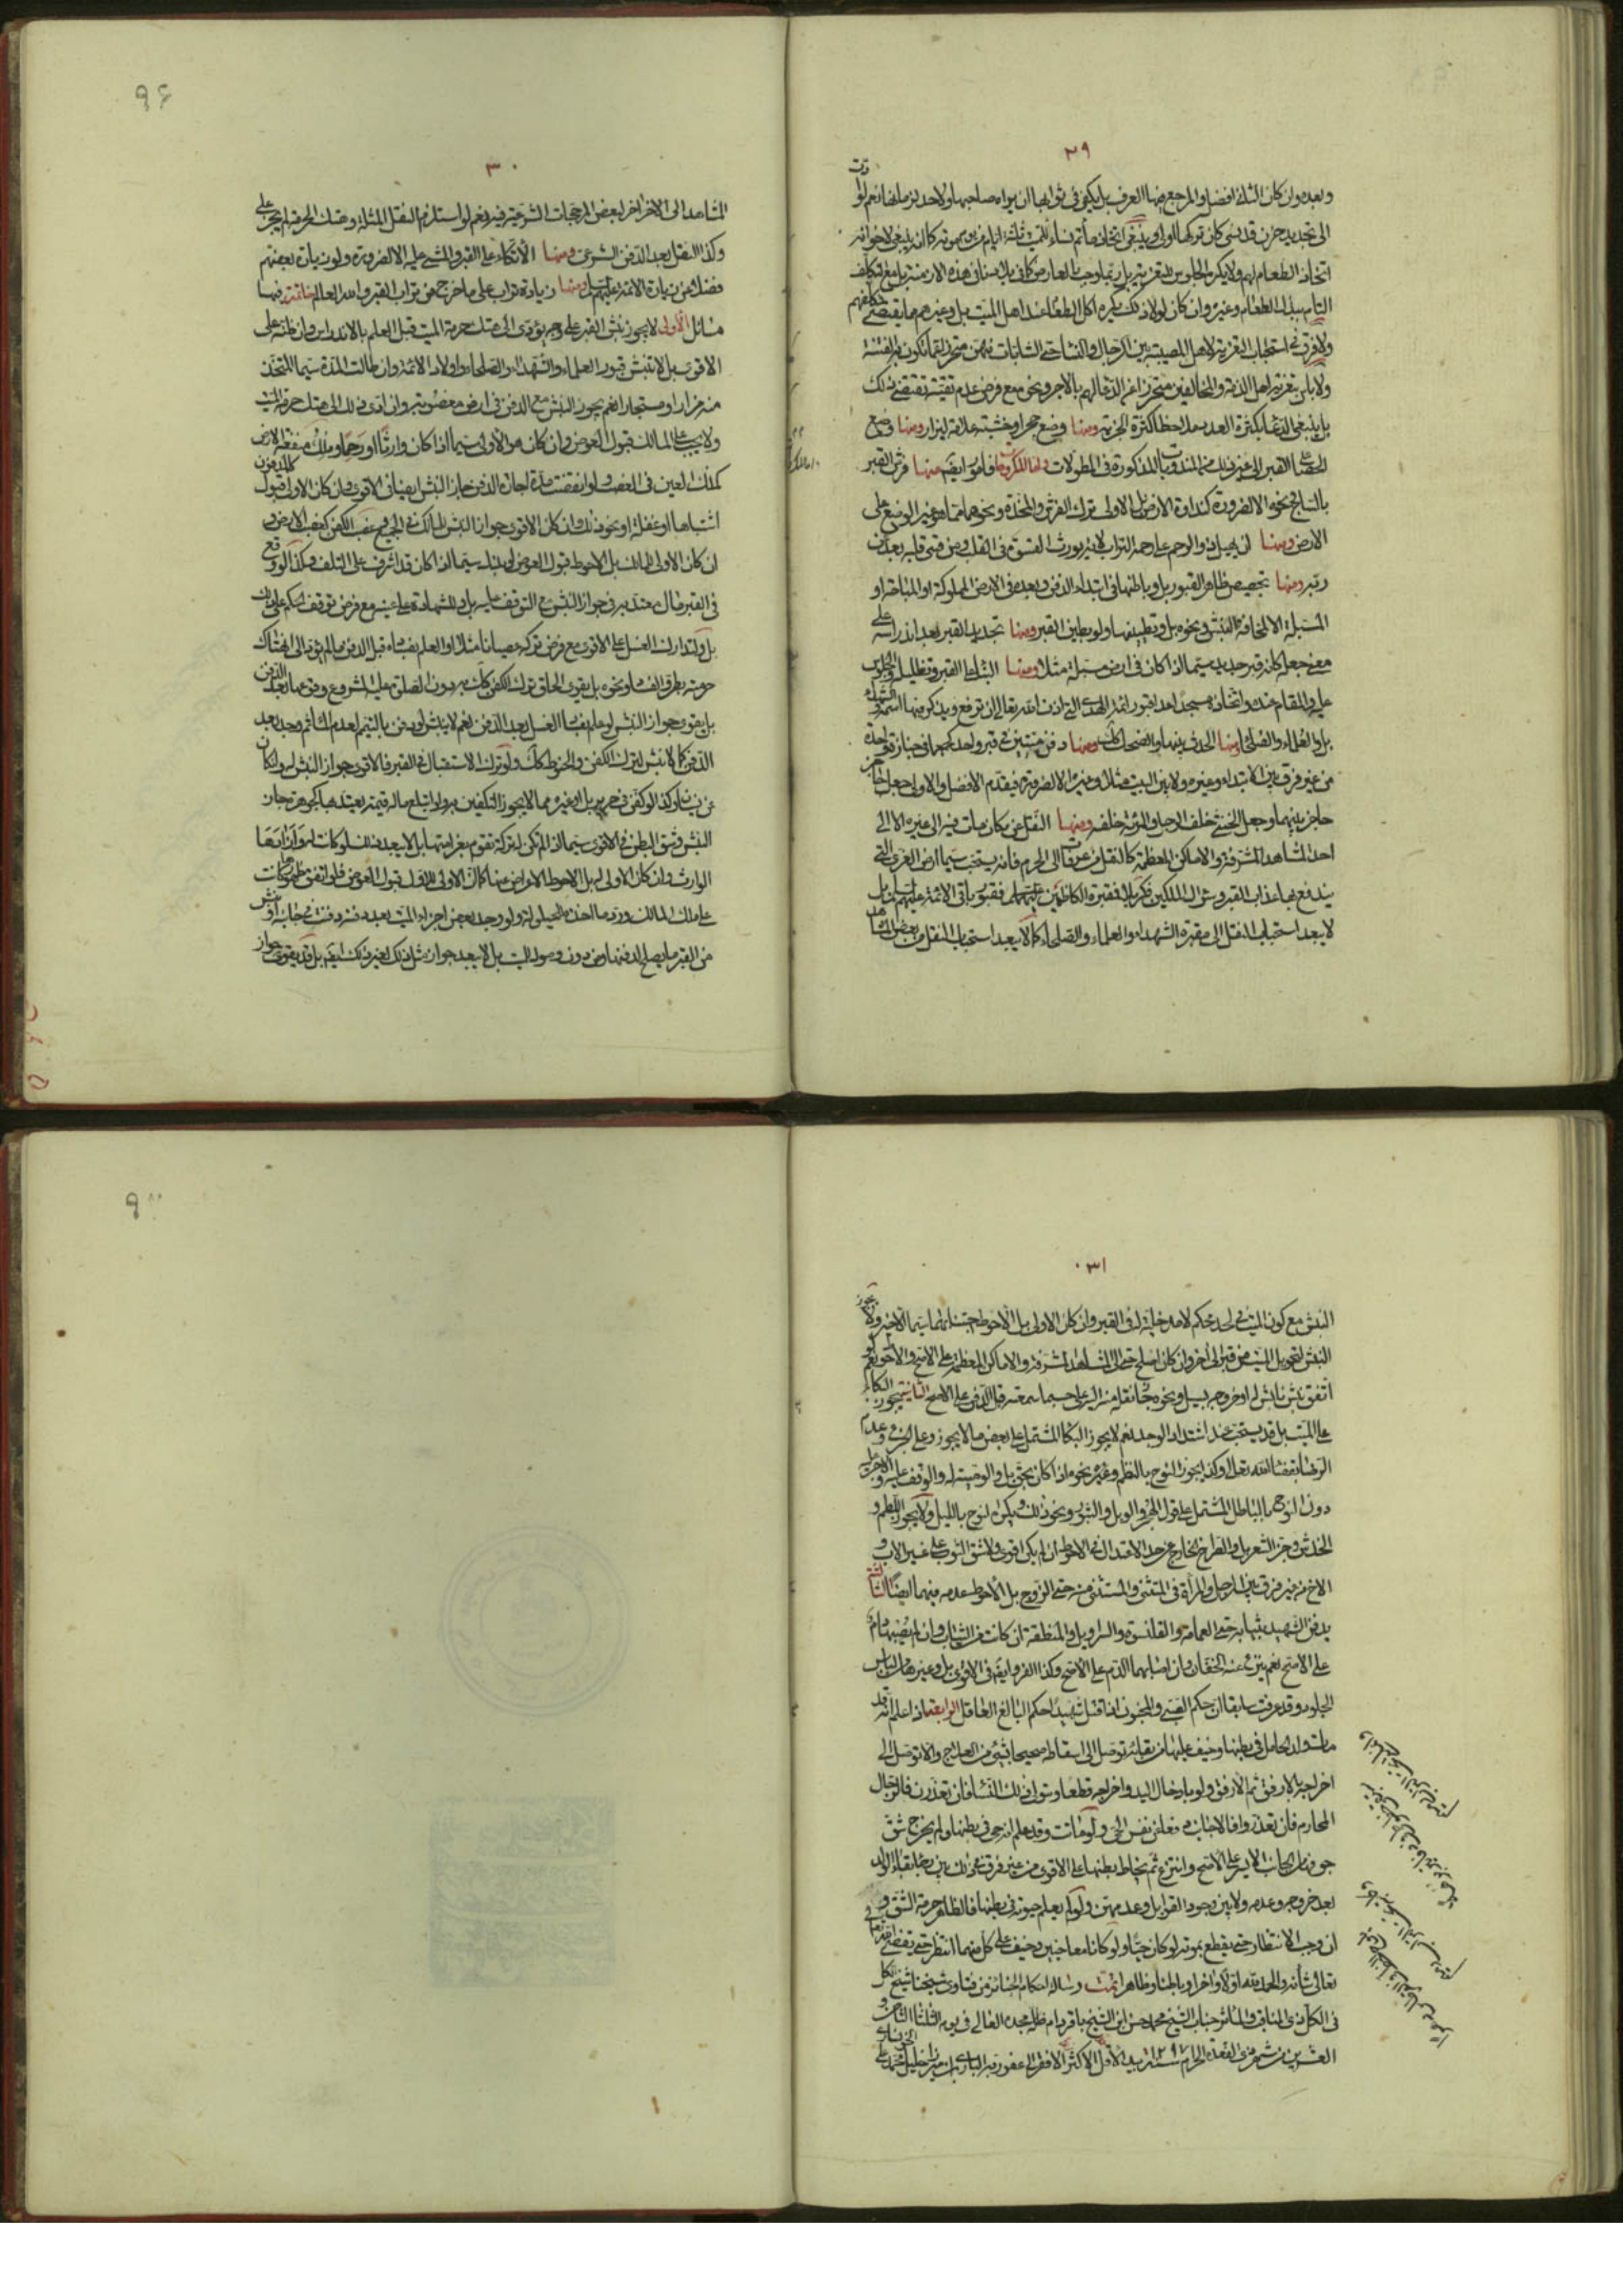 ٢٩
وبعده وان كان الثانى افضل والمرجع فيها العرف بل يكفى فى ثوابها ان يراه صاحبها ولا حد لزمانها نعم لو ادت
الى تجديد حزن قد نسى كان تركها اولى وينبغى اتخاذ مأتم نساء للميت ثلثة ايام من يوم موته كما انه ينبغى لاخوانه
اتخاذ الطعام لهم ولا يكره الجلوس للتعزية بل ربما وجب لعارض كما فى بلادنا فى هذه الازمنة بل مع تكلف
الناس ببذل الطعام وغيره وان كان لولا ذلك يكره اكل الطعام عند اهل الميت بل وغيرهم مما يقتضى تكلفهم
ولا فرق فى استحباب التعزية لاهل المصيبة بين الرجال والنساء حتى الشابات منهن متحرزا عما تكون به الفتنة
ولا باس بتعزية اهل الذمة والمخالفين متحرزا عن الدعاء لهم بالاجر ونحوه مع فرض عدم تقية تقتضى ذلك
بل ينبغى الدعاء بكثرة العدد ملاحظا كثرة الجزية ومنها وضع حجر او خشبة علامة ليزار ومنها وضع
الحصا على القبر الى غير ذلك من المندوبات المذكورة فى المطولات واما المكروهات فامور ايضا منها فرش القبر
بالساج ونحوه الا لضرورة كنداوة الارض بل الاولى ترك الفرش والمخدة ونحوهما مما هو غير الوضع على
الارض ومنها ان يهيل ذو الرحم على رحمه التراب لانه يورث القسوة فى القلب ومن قسى قلبه بعد من
ربه ومنها تجصيص ظاهر القبور بل وباطنها فى ابتداء الدفن وبعده فى الارض المملوكة او المباحة او
المسبلة الا لمخافة النبش ونحوه بل وتطيينها ولو بطين القبر ومنها تجديد القبر بعد اندراسه على
معنى جعله كانه قبر جديد سيما اذا كان فى ارض مسبلة مثلا ومنها البناء على القبر وتظليله والجلوس
عليه والمقام عنده واتخاذه مسجدا عدا قبور ائمة الهدى التى اذن الله تعالى ان ترفع ويذكر فيها اسمه والشهداء
بل والعلماء والصلحاء ومنها الحدث بينها والضحك كك ومنها دفن ميتين فى قبر واحد كحملهما فى جنازة واحدة
من غير فرق بين الابتداء وغيره ولا بين البيت مثلا وغيره الا لضرورة فيقدم الافضل والاولى جعل
حاجز بينهما وجعل الخنثى خلف الرجل والمرئة خلفه ومنها النقل عن مكان مات فيه الى غيره الا الى
احد المشاهد المشرفة والاماكن المعظمة كالنقل من عرفات الى الحرم فانه يستحب سيما ارض الغرى التى
يندفع بها عذاب القبر وسؤال الملكين فكربلا فمقبرة الكاظمين عليهما السلم فقبور باقى الائمة عليهم السلم بل
لا يبعد استحباب النقل الى مقبرة الشهداء والعلماء والصلحاء كما لا يبعد استحباب النقل من بعض المشاهد
٣٠
المشاهد الى الاخر لبعض المرجحات الشرعية فيه نعم لو استلزم النقل المثلة وهتك الحرمة لم يجز على
وكذا النقل بعد الدفن الشرعى ومنها الاتكاء على القبر والمشى عليه الا لضرورة ولو زيارة بعضهم
فضلا عن زيارة الائمة عليهم السلم ومنها زيادة تراب على ما خرج من تراب القبر والله العالم خاتمة فيها
مسائل الاولى لا يجوز نبش القبر على وجه يؤدى الى هتك حرمة الميت قبل العلم بالاندراس وان ظنه على
الاقوى بل لا تنبش قبور العلماء والشهداء والصلحاء واولاد الائمة وان طالت المدة سيما المتخذ
منه مزارا ومستجارا نعم يجوز النبش مع الدفن فى ارض مغصوبة وان ادى ذلك الى هتك حرمة الميت
ولا يجب على المالك قبول العوض وان كان هو الاولى سيما اذا كان وارثا او رحما وملك منفعة الارض
كملك العين فى الغصب ولو انقضت مدة اجارة الدفن جاز النبش ايضا فى الاقوى وان كان الاولى قبول
اشتباها او غفلة او نحو ذلك وان كان الاقوى جواز النبش للمالك فى الجميع وغصب الكفن كغصب الارض و
ان كان الاولى للمالك بل الاحوط قبول العوض لو بذل سيما اذا كان قد اشرف على التلف وكذا لو وقع
فى القبر مال معتد به فى جواز النبش مع التوقف عليه بل وللشهادة على عينه مع فرض توقف الحكم على ذلك
بل ولتدارك الغسل على الاقوى مع فرض تركه عصيانا مثلا او العلم بفساده قبل الدفن ما لم يؤد الى هتك
حرمته بطرو الفساد ونحوه بل يقوى الحاق ترك الكفن كك به دون الصلوة عليه
بل يقوى جواز النبش لو علم بفساد الغسل بعد الدفن نعم لا ينبش لو دفن بالتيمم لعدم الماء ثم وجد بعد
الدفن كما لا ينبش لترك الكفن والحنوط كك ولو ترك الاستقبال فى القبر فالاقوى جواز النبش له ولو كان
عن نسيان وكذا لو كفن فى حرير بل او غيره مما لا يجوز التكفين به ولو ابتلع ماله قيمة يعتد بها كجوهرة جاز
النبش وشق البطن فى الاقوى سيما اذا لم تكن له تركة تقوم بغرامتها بل لا يبعد ذلك لو كانت له واراد بها
الوارث وان كان الاولى له بل الاحوط الاعراض عنها كما ان الاولى للاول قبول العوض
على ملك المالك ورد ما اخذه للحيلولة ولو وجد بعض اجزاء الميت بعد دفنه دفنت فى جانبه او نبش
من القبر ما يصلح لدفنها من دون وصول الميت بل لا يبعد جواز مثل ذلك لغير ذلك ايضا بل قد يقوى جواز
٣١
النبش مع كون الميت فى لحد محكم لا مدخلية له فى القبر وان كان الاولى بل الاحوط اجتنابهما سيما الاخير ولا يجوز
النبش لتحويل الميت من قبر الى اخر وان كان اصلح حتى الى المشاهد المشرفة والاماكن المعظمة على الاصح والاحوط نعم لو
اتفق نبش نابش له او خروجه بسيل ونحوه جاز نقله منه اليها على حسب ما سمعته قبل الدفن على الاصح الثانية يجوز البكاء
على الميت بل قد يستحب عند اشتداد الوجد نعم لا يجوز البكاء المشتمل على بعض ما لا يجوز وعلى الجزع وعدم
الرضا بقضاء الله تعالى وكذا يجوز النوح بالنظم وغيره نحوه اذا كان بحق بل والوصية له والوقف عليه والاجرة عليه
دون النوح بالباطل المشتمل على قول الهجر والويل والثبور ونحو ذلك ويكره النوح بالليل ولا يجوز اللطم و
الخدش وجز الشعر بل والصراخ الخارج عن حد الاعتدال فى الاحوط ان لم يكن اقوى ولا شق الثوب على غير الاب و
الاخ من غير فرق بين الرجل والمرأة فى المستثنى والمستثنى منه حتى الزوج بل الاحوط عدمه فيهما ايضا الثالثة
يدفن الشهيد بثيابه حتى العمامة والقلنسوة والسراويل والمنطقة ان كانت من الثياب وان لم يصبها دم
على الاصح نعم ينزع عنه الخفان وان اصابهما الدم على الاصح وكذا الفرو ايضا فى الاقوى بل وغيره من لباس
الجلود وقد عرفت سابقا ان حكم الصبى والمجنون اذا قتل شهيدا حكم البالغ العاقل الرابعة اذا علم انه قد
مات ولد الحامل فى بطنها وخيف عليها من بقائه توصل الى اسقاطه صحيحا بشئ من العلاج والا توصل الى
اخراجه بالارفق ثم الارفق ولو بادخال اليد واخراجه قطعا ويتولى ذلك النساء فان تعذرن فالرجال
المحارم فان تعذروا فالاجانب دفعا عن نفس الحى ولو ماتت وقد علم انه حى فى بطنها ولم يخرج شق
جوفها من الجانب الايسر على الاصح وانتزع ثم يخاط بطنها على الاقوى من غير فرق فى ذلك بين رجاء بقاء الولد
بعد خروجه وعدمه ولا بين وجود القوابل وعدمهن ولو لم يعلم حيوته فى بطنها فالظاهر حرمة الشق و
ان وجب الانتظار حتى يقطع بموته لو كان حيا ولو كانا معا حيين وخيف على كل منهما انتظر حتى يقضى الله
تعالى شأنه والحمد لله اولا واخرا وباطنا وظاهرا تمت رسالة احكام الجنائز من فتاوى شيخنا شيخ الكل
فى الكل ذى المناقب والمآثر جناب الشيخ محمد حسن ابن الشيخ باقر دام ظله مجده العالى فى يوم الثلثاء الثامن و
العشرين من شهر ذى القعدة الحرام بيد الاقل الاكثر الافقر الى عفو ربه البارى ابن ميرزا خليل محمد على